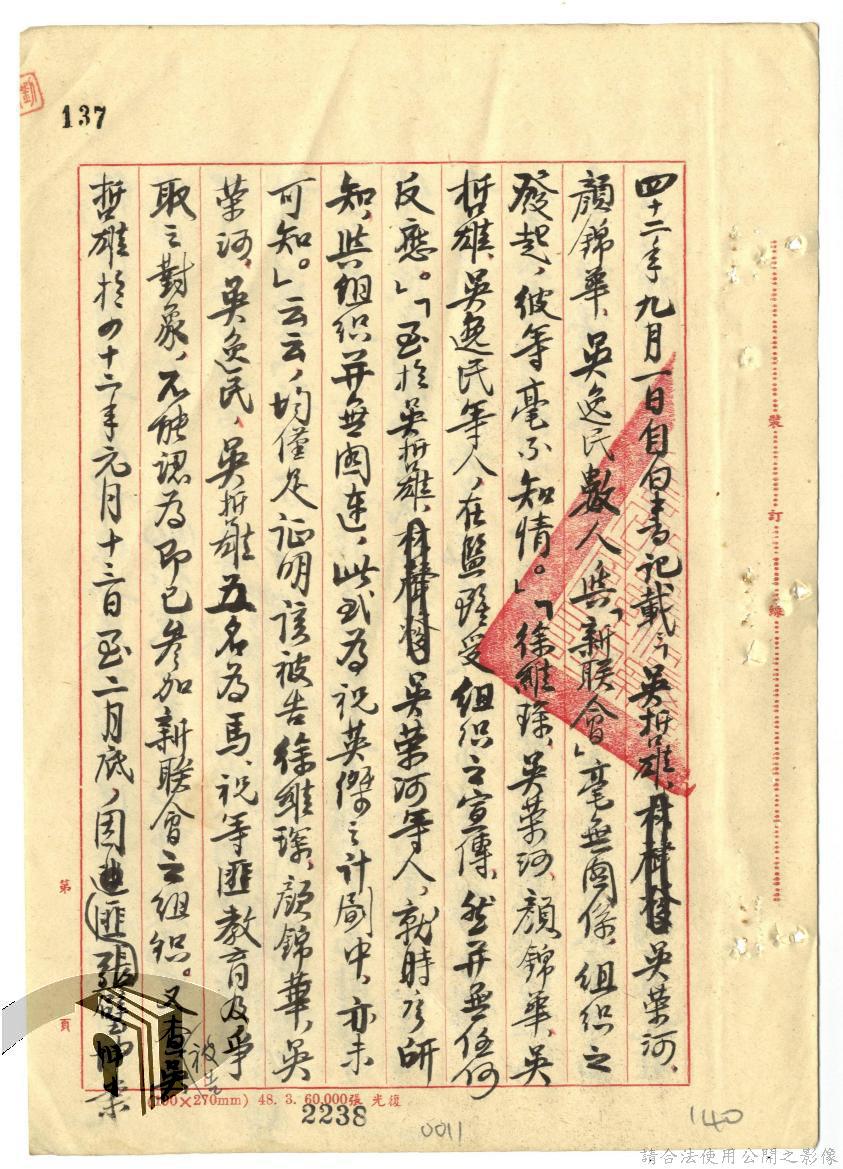 137
四十二年九月一日自白書記載：「吳哲雄、吳榮河、
顏錦華、吳逸民數人與「新联會」毫無関係，組织之
發起，彼等毫不知情。」「徐維琛、吳榮河、顏錦華、吳
哲雄、吳逸民等人，在監雖受組织之宣傳，然并無任何
反應。」「至於吳哲雄、吳榮河等人，就時序研
知，與組织并無関連，此或為祝英傑之計劃中，亦未
可知。」云云，均僅足証明該被告徐維琛、顏錦華、吳
榮河、吳逸民、吳哲雄五名為馬、祝等匪教育及爭
取之對象，不能認為即已參加新联會之組织。又查被告吳
哲雄於四十二年元月十三日至二月底，因匪張
裝訂線
第 頁
(190×270mm) 48. 3. 60,000張 光復
2238
0011
140
請合法使用公開之影像